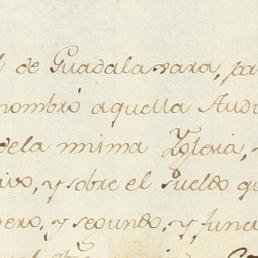 de Guadalaxara, par
nombró aquella Audi
dela misma Yglesia,
ivo, y sobre el sueldo q
pero, y segundo, y funci